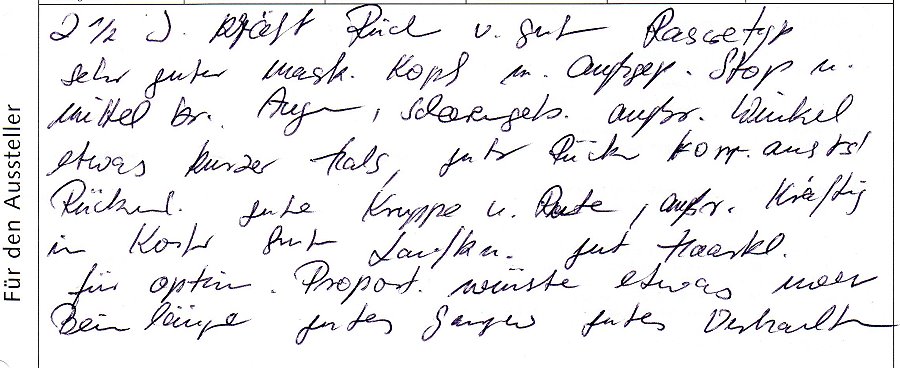 Für den Aussteller
2 1/2 J. kräft Rüd v. gut Rassetyp
sehr guter mask. Kopf m. aufgep. Stop u.
mittel br. Augen, Scherengeb. außr. Winkel
etwas kurzer Hals, guter Rücken korr.
Rückenl. gute Kruppe u. Rute, außr. kräftig
in Kost gut gut Haarkl.
für optim. Proport. wünste etwas mehr
Bein länge gutes Gangw gutes Verhalten